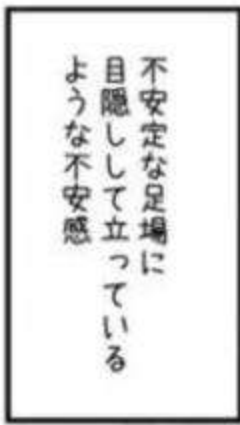 不安定な足場に
目隠しして立っている
ような不安感